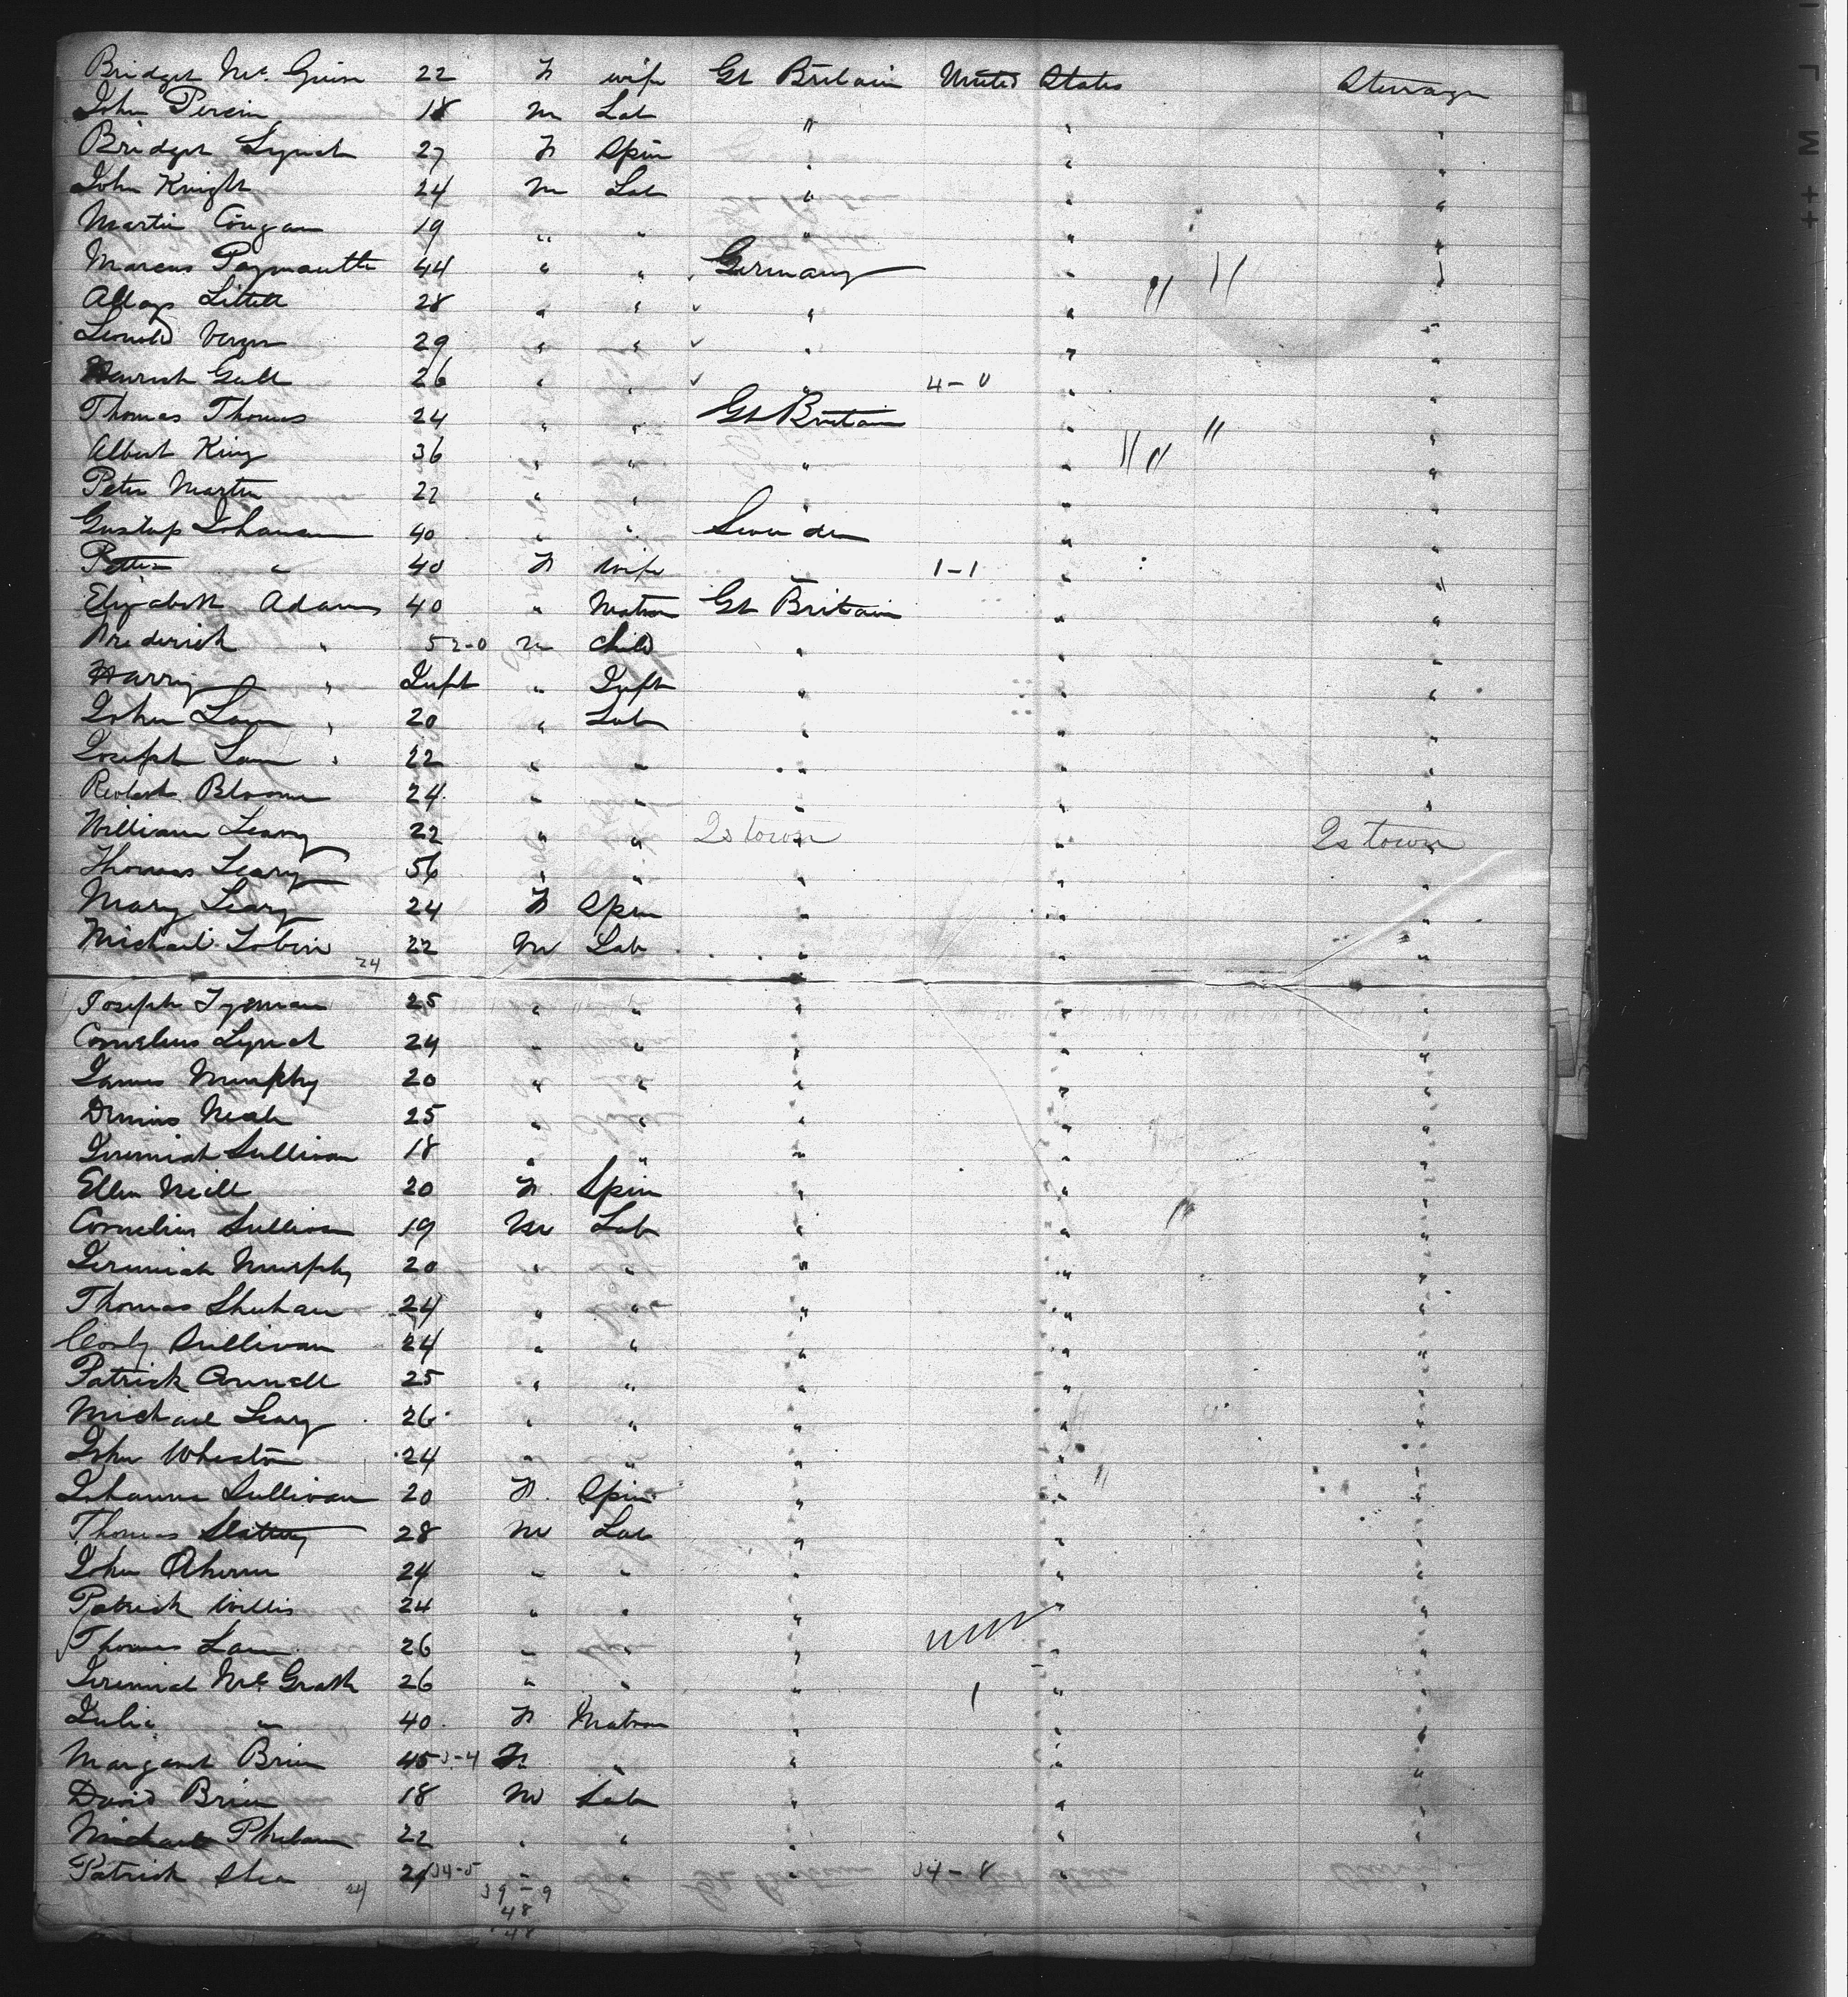 Bridget Mc Guire 22 F wife Gt Britain United States Steerage
John 18 M Lab " " "
Bridget Lynch 27 F Spin " " "
John Knight 24 M Lab " " "
Martin Cougan 19 " " " " "
Marcus 44 " " Germany " "
28 " " " " "
29 " " " " "
Gull 26 " " " 4-0 " "
Thomas Thomas 24 " " Gt Britain " "
Albert King 36 " " " " "
Peter Martin 22 " " " " "
Gustaf Johansson 40 " " Sweden " "
" 40 F wife 1-1 " "
Elizabeth Adams 40 " Matron Gt Britain " "
Frederick " 5 2-0 M Child " " "
Harry " Inft " Inft " " "
John " 20 " Lab " " "
Joseph " 22 " " " " "
Robert Bloom 24 " " " " "
William Leary 22 " " Qs town " " Qs town
Thomas Leary 56 " " " " "
Mary Leary 24 F Spin " " "
Michael Tobin 22 M Lab " " "
24
Joseph 25 " " " " "
Cornelius Lynch 24 " " " " "
James Murphy 20 " " " " "
Dennis Neale 25 " " " " "
Jeremiah Sullivan 18 " " " " "
Ellen Neill 20 F Spin " " "
Cornelius Sullivan 19 M Lab " " "
Jeremiah Murphy 20 " " " " "
Thomas Shehan 24 " " " " "
Sullivan 24 " " " " "
Patrick Connell 25 " " " " "
Michael Leary 26 " " " " "
John Wheston 24 " " " " "
Johanna Sullivan 20 F Spin " " "
Thomas Slattery 28 M Lab " " "
John Ahern 24 " " " " "
Patrick Willis 24 " " " " "
Thomas 26 " " " " "
Jeremiah Mc Grath 26 " " " " "
Julia " 40 F Matron " " "
Margaret Brien 45 3-4 F " " " "
David Brien 18 M Lab " " "
Michael Phelan 22 " " " " "
Patrick Shea 24 34-5 " " " 34-8 " "
24 39-9
48
48